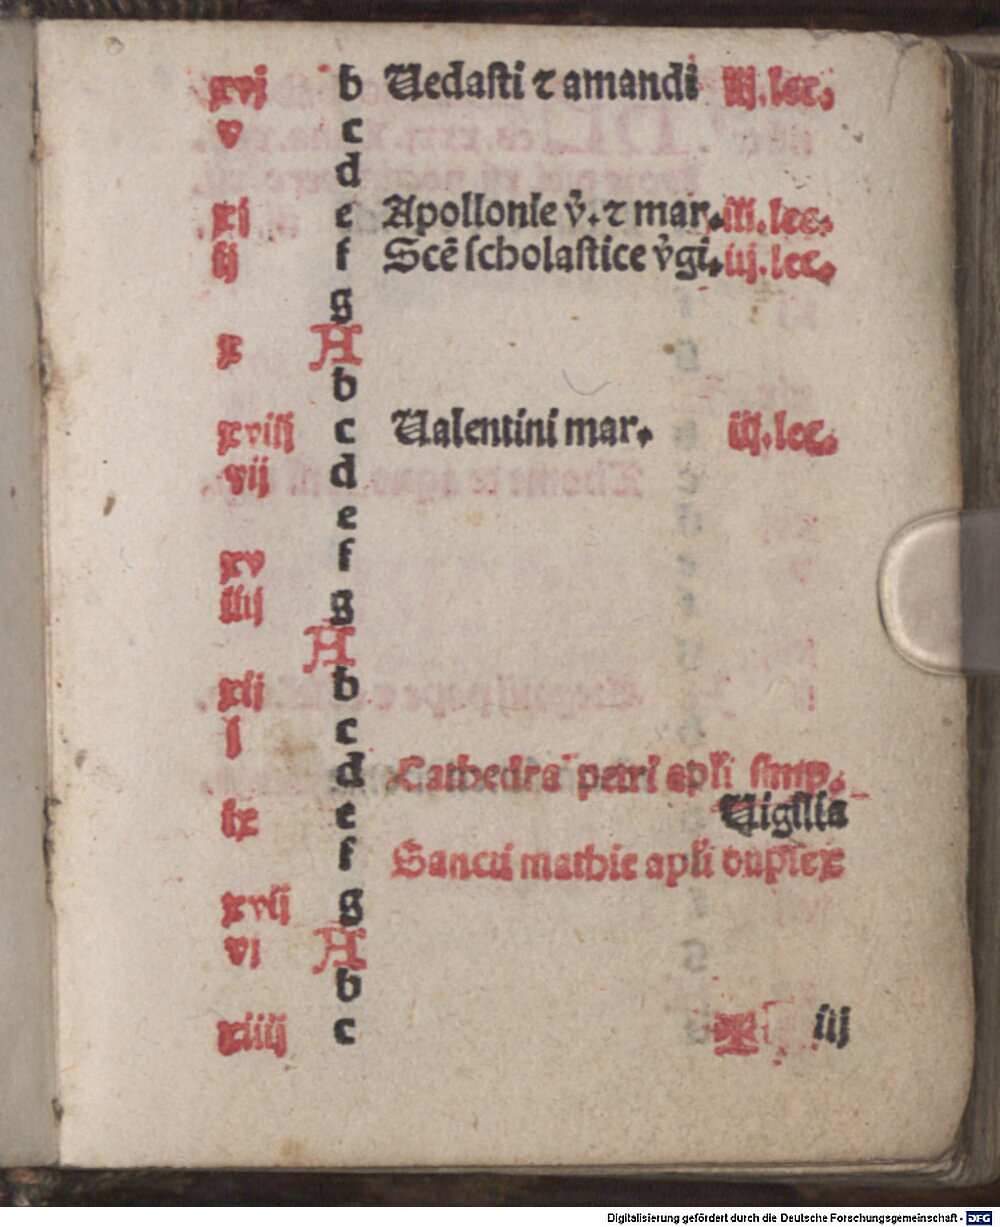 xvj b Uedasti ⁊ amandi iij. lec.
v c
d
xj e Apollonie v̄. ⁊ mar. iij. lec.
ij f Scē scholastice v̄gi. iij. lec.
g
x A
b
xviij c Ualentini mar. iij. lec.
vij d
e
xv f
iiij g
A
xij b
j c
d Cathedra petri apli simp.
ix e Vigilia
f Sancti mathie apli duplex
xvij g
vj A
b
xiiij c
✠ iij
Digitalisierung gefördert durch die Deutsche Forschungsgemeinschaft - DFG